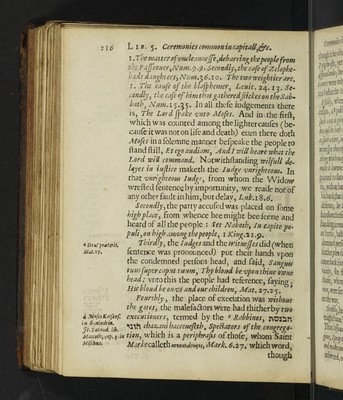 216 LIB. 5. Ceremonies common in capitall, &c.
1. The matter of uncleannesse, debarring the people from
the Passeover, Num. 9.9. Secondly, the case of Zelophe-
hads daughters, Num. 36.10. The two weightier are,
1. The cause of the blasphemer, Levit. 24.13. Se-
condly, the case of him that gathered stickes on the Sab-
bath, Num. 15.35. In all these iudgements there
is, The Lord spake unto Moses. And in the first,
which was counted among the lighter causes (be-
cause it was not on life and death) even there doth
Moses in a solemne manner bespeake the people to
stand still, Et ego audiam, And I will heare what the
Lord will command. Notwithstanding wilfull de-
layes in iustice maketh the Iudge unrighteous. In
that unrighteous Iudge, from whom the Widow
wrested sentence by importunity, we reade not of
any other fault in him, but delay, Luk. 18.6.
Secondly, the party accused was placed on some
high place, from whence hee might bee seene and
heard of all the people: Set Naboth, in capite po-
puli, on high among the people, 1 King. 21.9.
Thirdly, the Iudges and the Witnesses did (when
sentence was pronounced) put their hands upon
the condemned persons head, and said, Sanguis
tuus super caput tuum, Thy bloud be upon thine owne
head: unto this the people had reference, saying,
His bloud be on us and our children, Mat. 27.25.
Fourthly, the place of execution was without
the gates, the malefactors were had thither by two
executioners, termed by the Rabbines, חזני הכנסת
chazani haceneseth, Spectators of the congrega-
tion, which is a periphrasis of those, whom Saint
Marke calleth Mark. 6.27. which word,
though
Mat. 27.